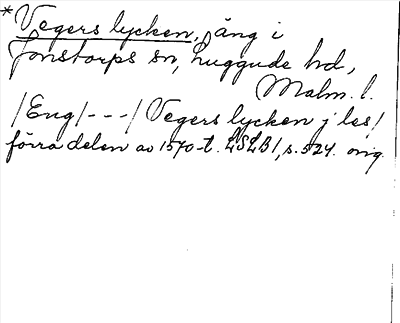 * Vegers lycken, äng i
Jonstorps sn, Luggude hd,
Malm. l.
/Eng/---/ Vegers lycken j les/
förra delen av 1570-t. LSLB1, s. 524. orig.